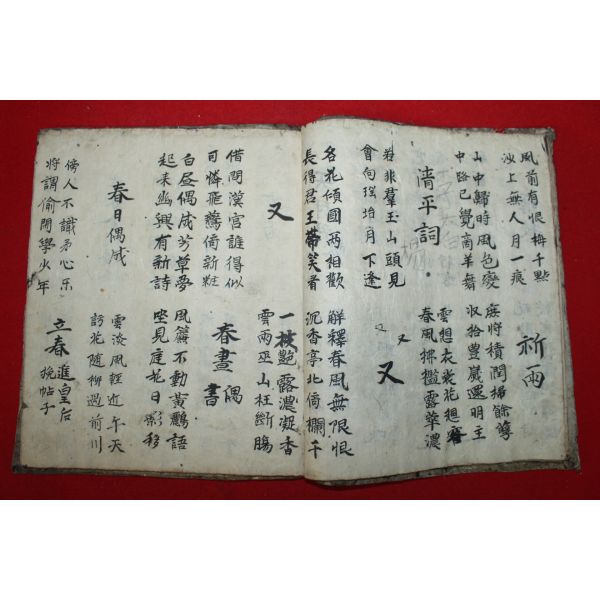 風前有恨梅千點
沙上無人月一痕
祈雨
山中歸時風色變
中路已覺商羊舞
疾將積潤掃餘孽
收拾豊歲還明主
清平詞
雲想衣裳花想容
春風拂檻露華濃
若非羣玉山頭見
會向瑤坮月下逢
又
又
又
名花傾國兩相歡
長得君王帶笑看
解釋春風無限恨
沉香亭北倚欄干
又
一枝艶露濃凝香
雲雨巫山枉斷膓
借問漢宮誰得似
可憐飛鷰倚新粧
春晝偶書
白昼偶成芳草夢
起來幽興有新詩
風簾不動黃鸝語
坐見庭花日影移
春日偶成
雲淡風輕近午天
訪花隨柳過前川
傍人不識余心樂
將謂偷閒學少年
立春 進皇后
帖子